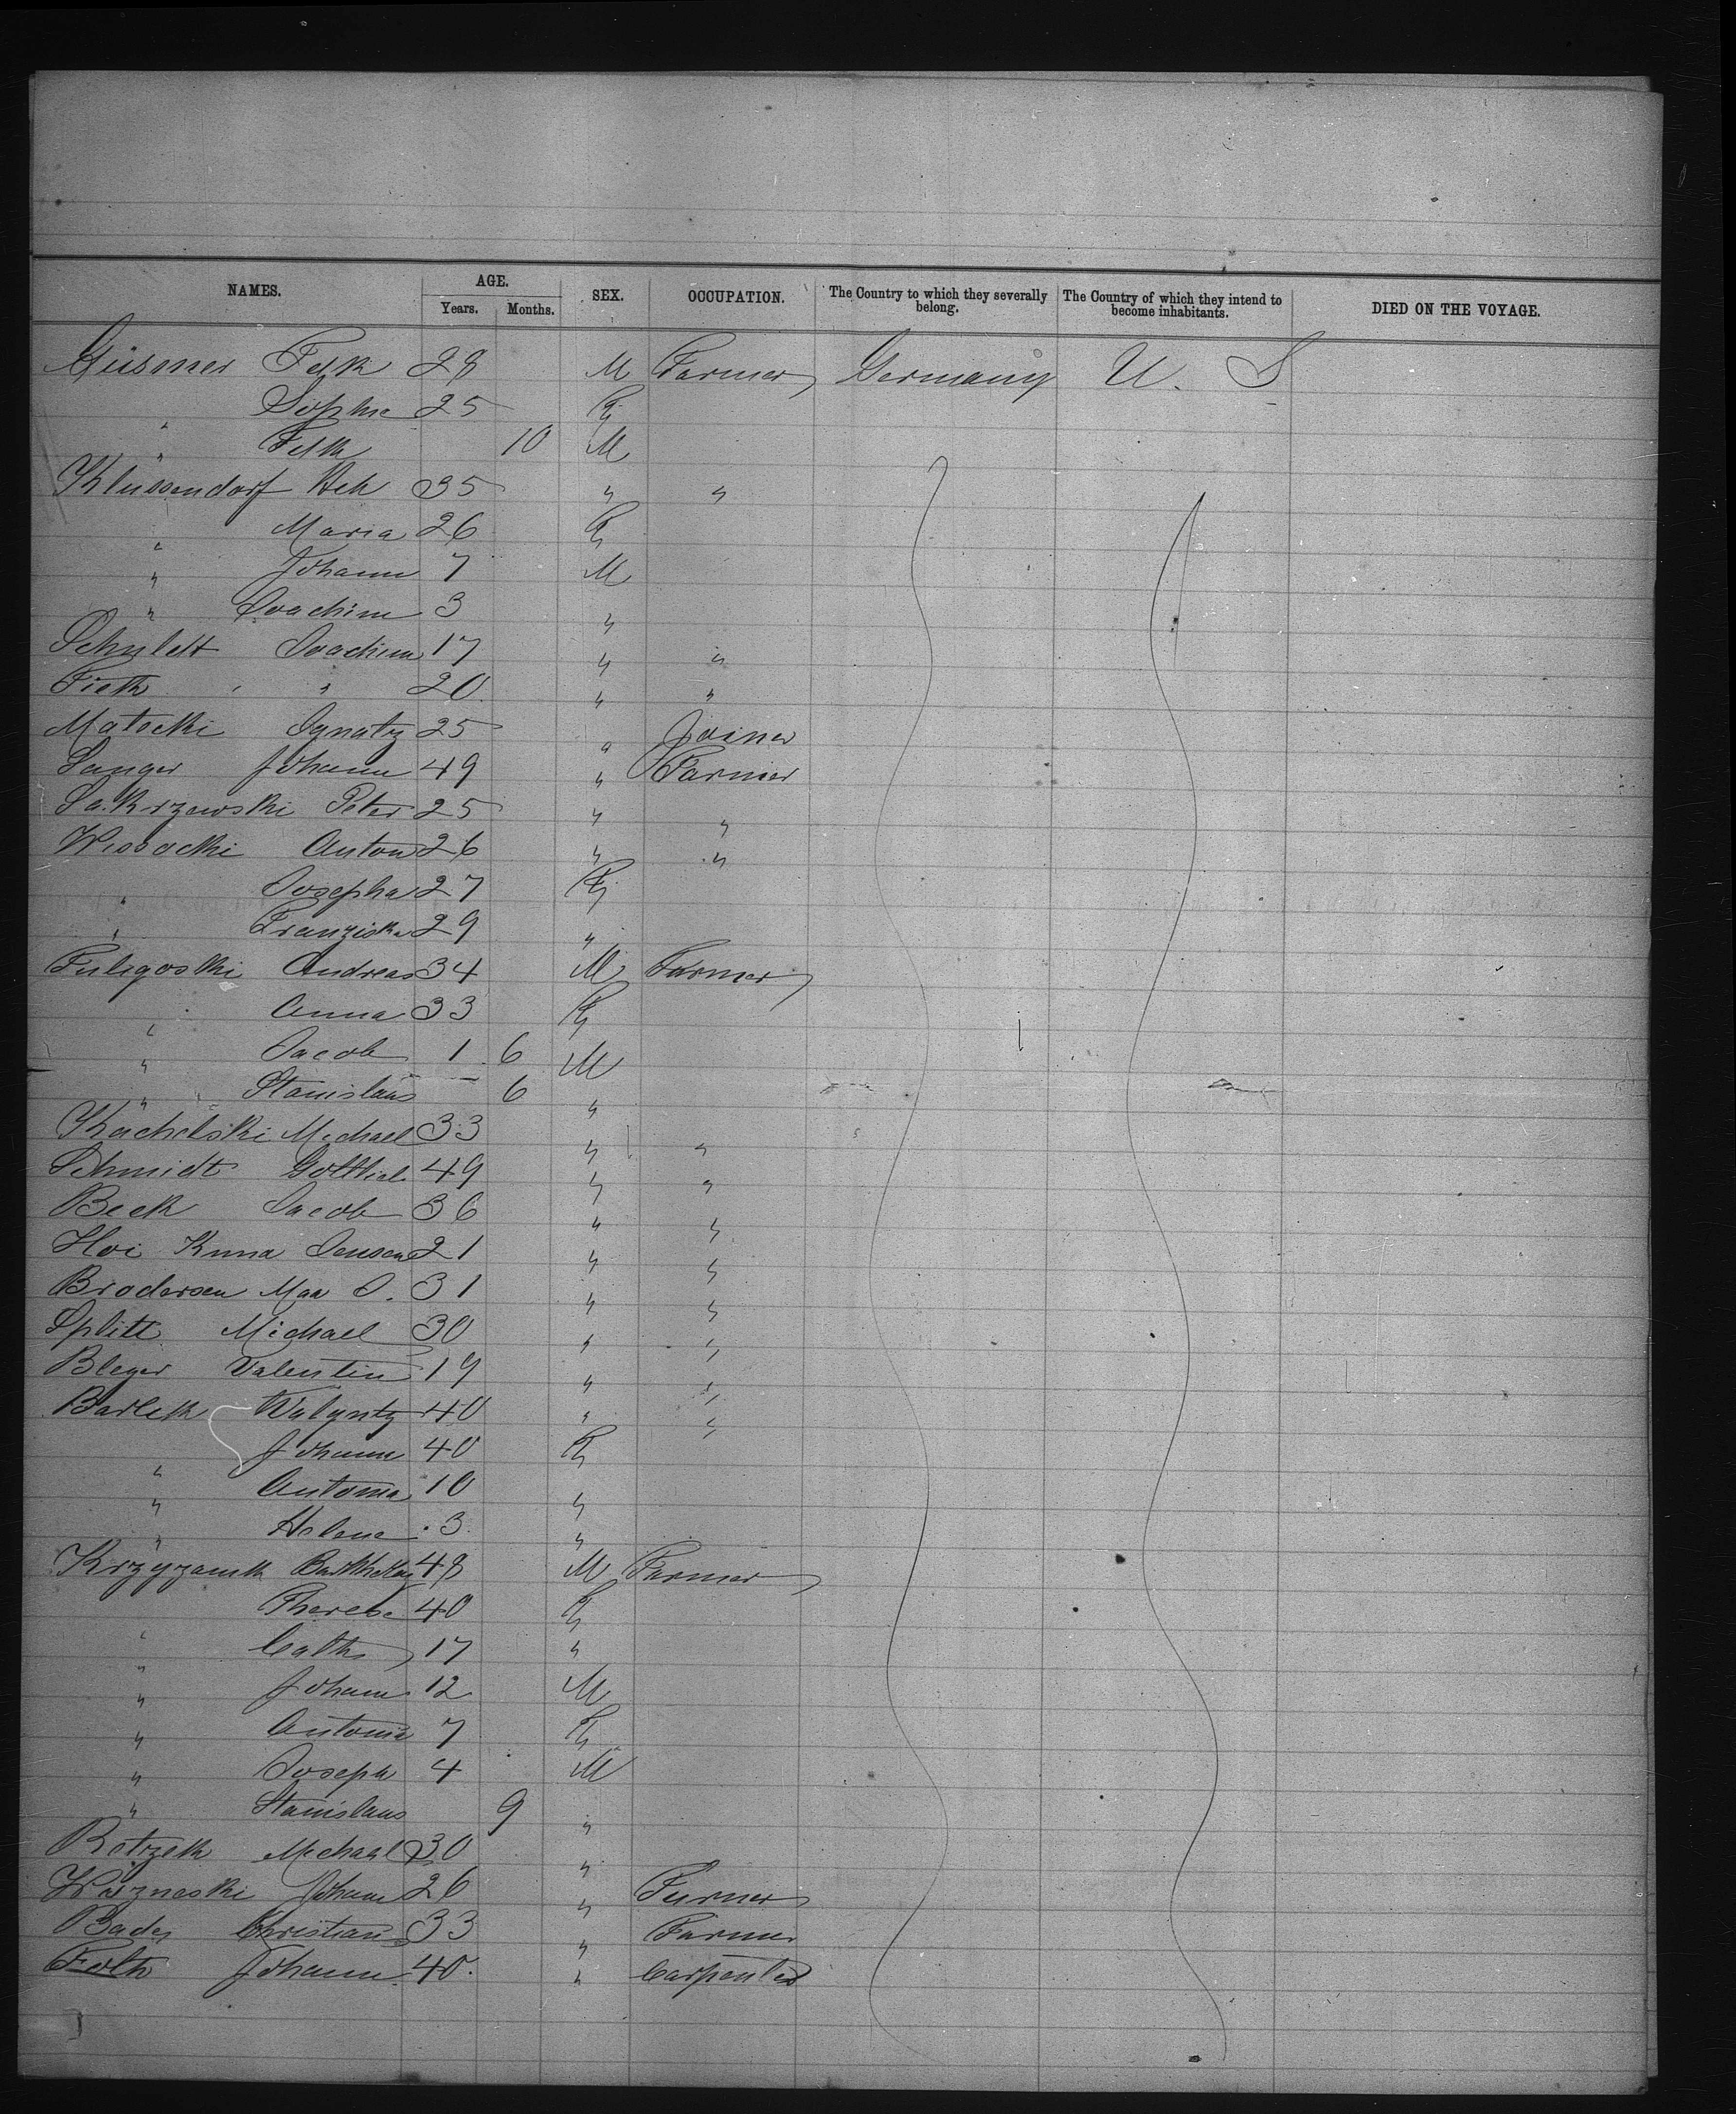 NAMES. AGE. Years. Months. SEX. OCCUPATION. The Country to which they severally belong. The Country of which they intend to become inhabitants. DIED ON THE VOYAGE.
28 M Farmer Germany U. S
" Sophie 25 F
" 10 M
Klussendorf Hch 35 " "
" Maria 26 F
" Johann 7 M
" Joachim 3 "
Schuldt Joachim 17 " "
Fieth " " 20 " "
Matecki Ignatz 25 " Joiner
Sanger Johann 49 " Farmer
Sakrzewski Peter 25 " "
Wessocki Anton 26 " "
" Josepha 27 F
" Franziska 29 "
Andreas 34 M Farmer
" Anna 33 F
" Jacob 1 6 M
" Stanislaus — 6 "
Kachelski Michael 33 " "
Schmidt Gottlieb 49 " "
Beck Jacob 36 " "
Hoi Jensen 21 " "
Brodersen 31 " "
Splitt Michael 30 " "
Bleger Valentin 19 " "
Barlek Walentz 40 " "
" Johann 40 F
" Antonia 10 "
" Helene 3 "
48 M Farmer
" Therese 40 F
" Cath 17 "
" Johann 12 M
" Antonia 7 F
" Joseph 4 M
" Stanislaus 9 "
Retzek Michael 30 "
Johann 26 "
Bades Christian 33 " Farmer
Foth Johann 40. " Carpenter